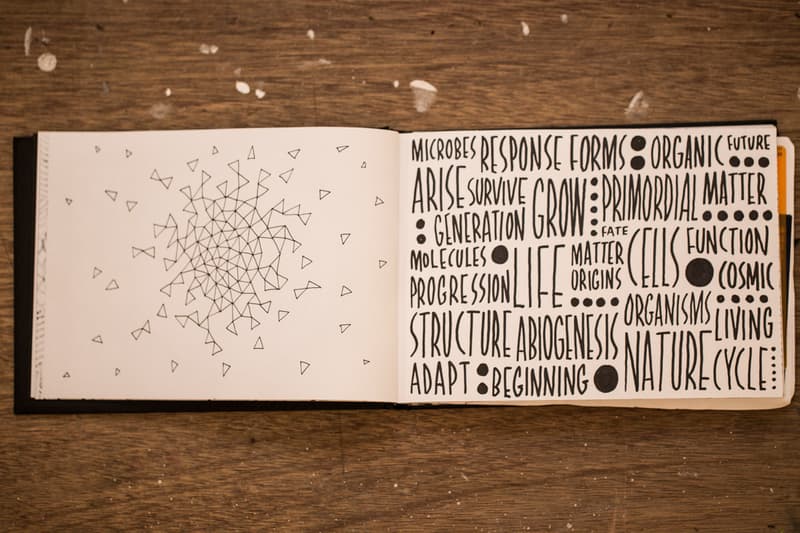 MICROBES RESPONSE FORMS ORGANIC FUTURE
ARISE SURVIVE GROW PRIMORDIAL MATTER
GENERATION FATE FUNCTION
MOLECULES MATTER CELLS
PROGRESSION LIFE ORIGINS COSMIC
STRUCTURE ABIOGENESIS ORGANISMS LIVING
ADAPT BEGINNING NATURE CYCLE